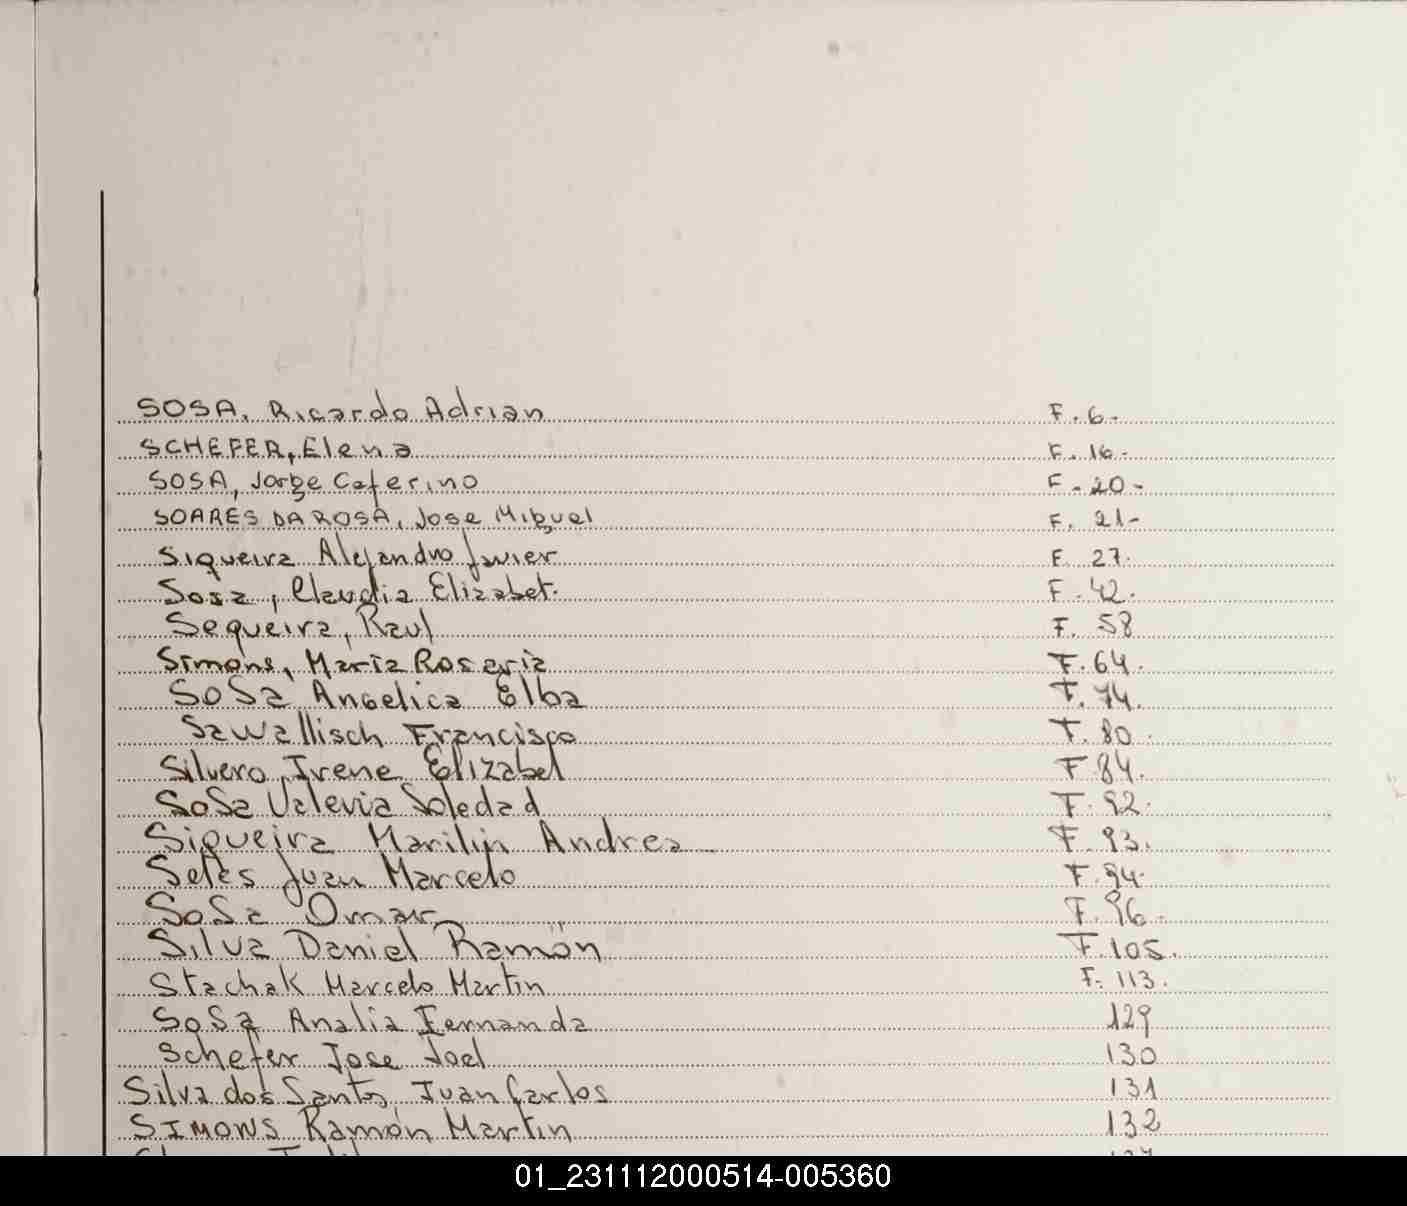 SOSA, Ricardo Adrian F. 6.-
SCHEFER, Elena F. 16-
SOSA, Jorge Ceferino F. 20-
SOARES DA ROSA, Jose Miguel F. 21-
Siqueira Alejandro Javier F. 27.
Sosa, Claudia Elizabet. F. 42.
Sequeira, Raul F. 58
Simons, Maria Rosaria F. 64.
SoSa Angelica Elba F. 74.
Sawallisch Francisco F. 80.
Silvero, Irene Elizabet F 84.
SoSa Valeria Soledad F. 92.
Siqueira Marilin Andrea F. 93.
Seles Juan Marcelo F. 94.
SoSa Omar F. 96.
Silva Daniel Ramón F. 105.
Stachak Marcelo Martin F. 113.
SoSa Analia Fernanda 129
Schefer Jose Joel 130
Silva dos Santos, Juan Carlos 131
SIMONS Ramón Martin 132
01_231112000514-005360